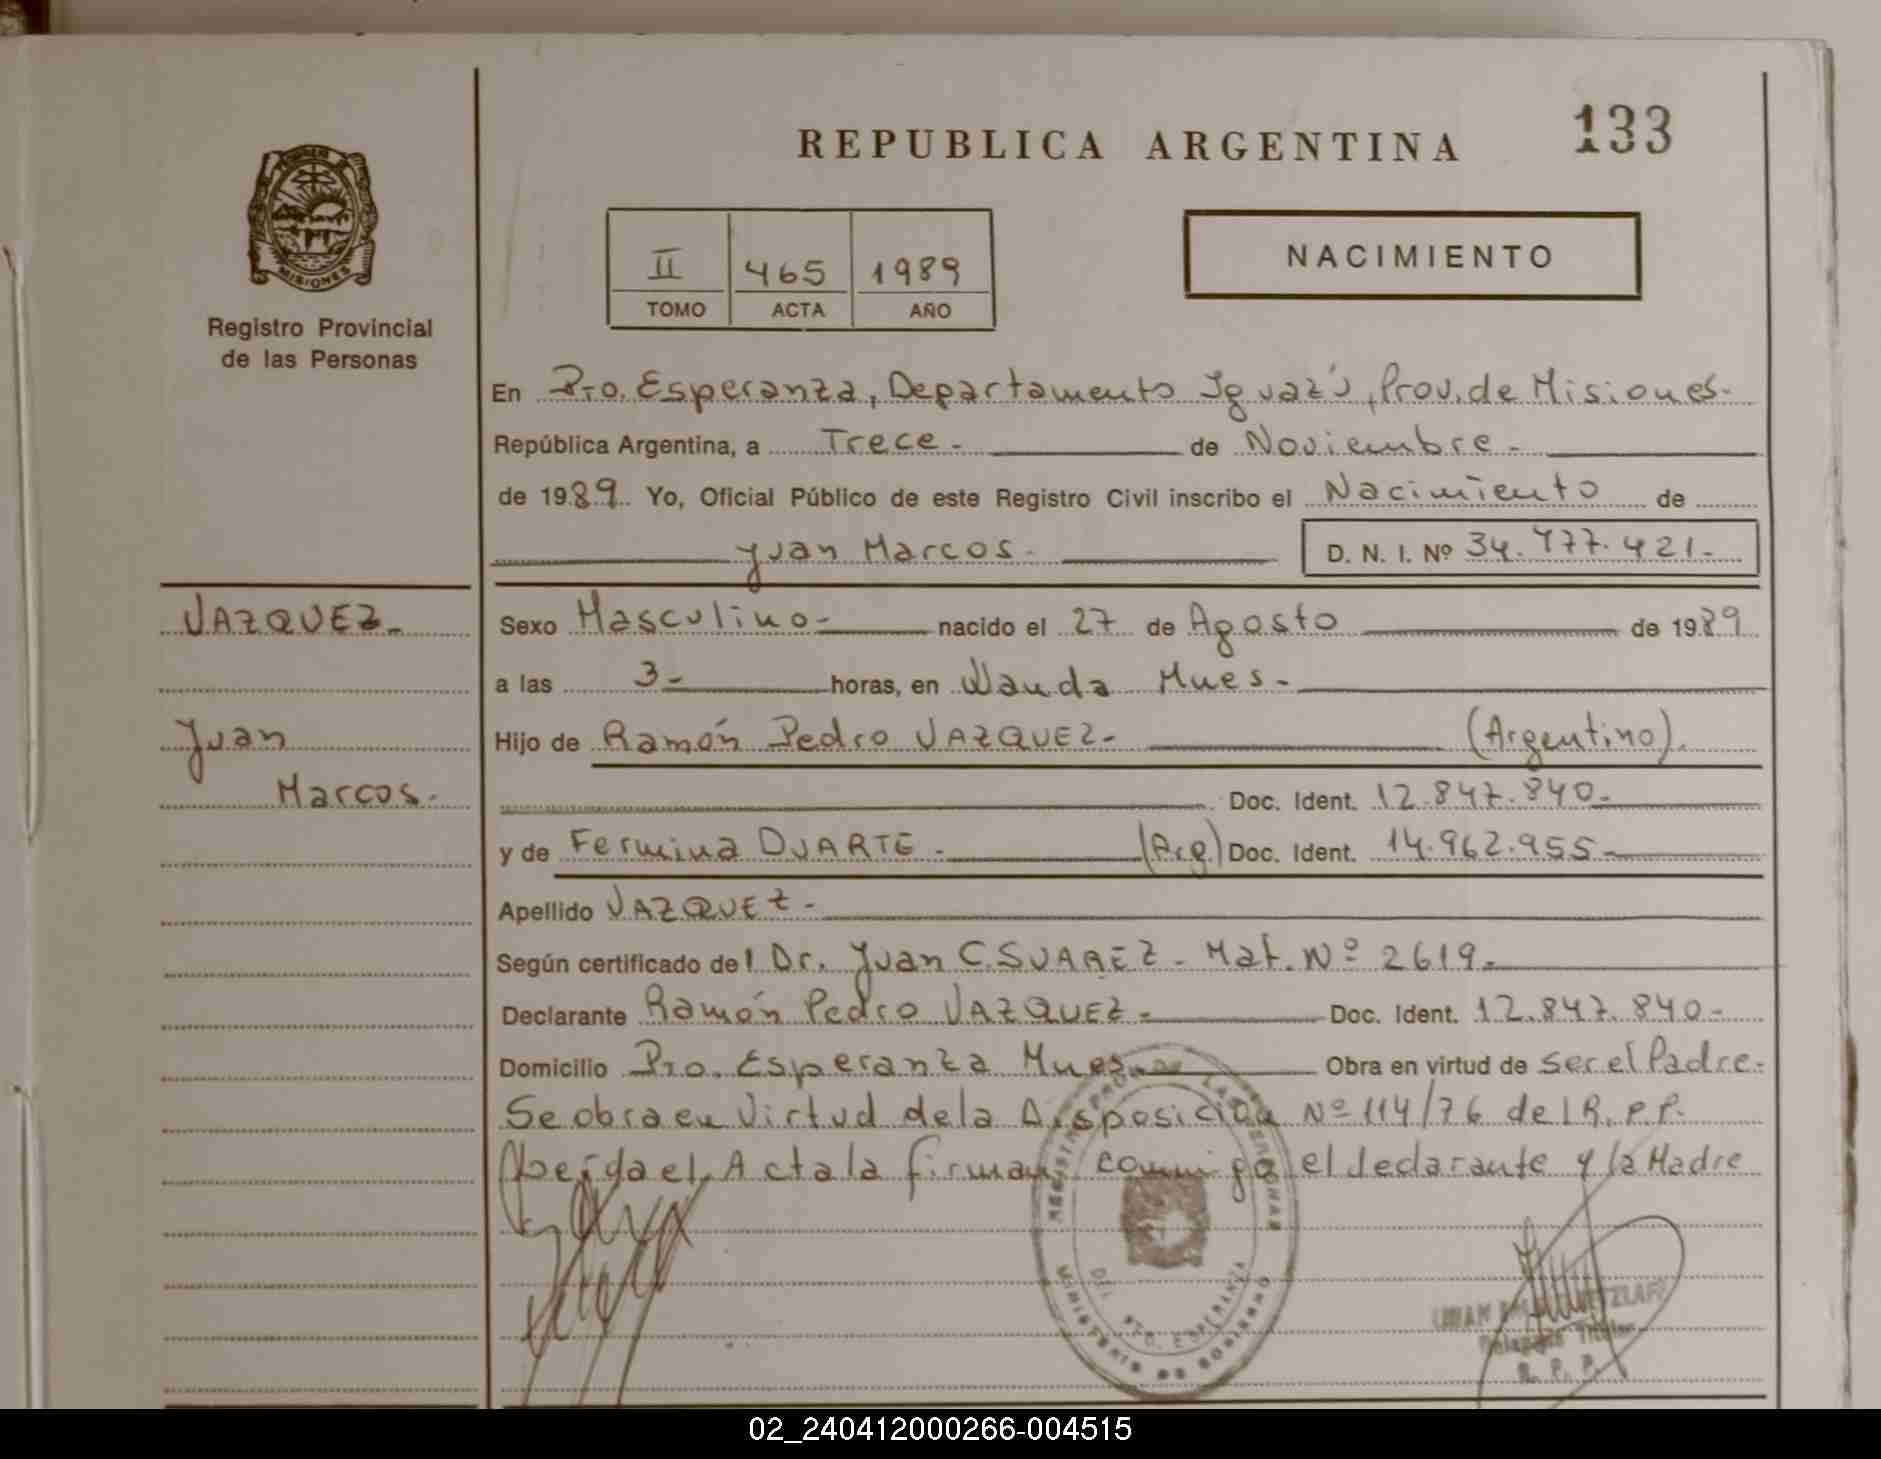 133
REPUBLICA ARGENTINA
MISIONES
Registro Provincial
de las Personas
II 465 1989
TOMO ACTA AÑO
NACIMIENTO
En Pto. Esperanza, Departamento Iguazú, Prov. de Misiones.
República Argentina, a Trece - de Noviembre -
de 1989 Yo, Oficial Público de este Registro Civil inscribo el Nacimiento de
Juan Marcos - D. N. I. Nº 34.477.421.-
VAZQUEZ -
Juan
Marcos -
Sexo Masculino - nacido el 27 de Agosto de 1989
a las 3 - horas, en Wanda Mnes -
Hijo de Ramón Pedro VAZQUEZ - (Argentino).
Doc. Ident. 12.847.840 -
y de Fermina DUARTE - (Arg.) Doc. Ident. 14.962.955 -
Apellido VAZQUEZ -
Según certificado del Dr. Juan C. SUAREZ - Mat. Nº 2619 -
Declarante Ramón Pedro VAZQUEZ - Doc. Ident. 12.847.840 -
Domicilio Pto. Esperanza Mnes - Obra en virtud de ser el Padre -
Se obra en Virtud de la Disposición Nº 114/76 del R.P.P.
Leída el Acta la firman conmigo el declarante y la Madre
REGISTRO PROV. DE LAS PERSONAS
DEL. PTO. ESPERANZA
MINISTERIO DE GOBIERNO
Delegado Titular
R. P. P.
02_240412000266-004515